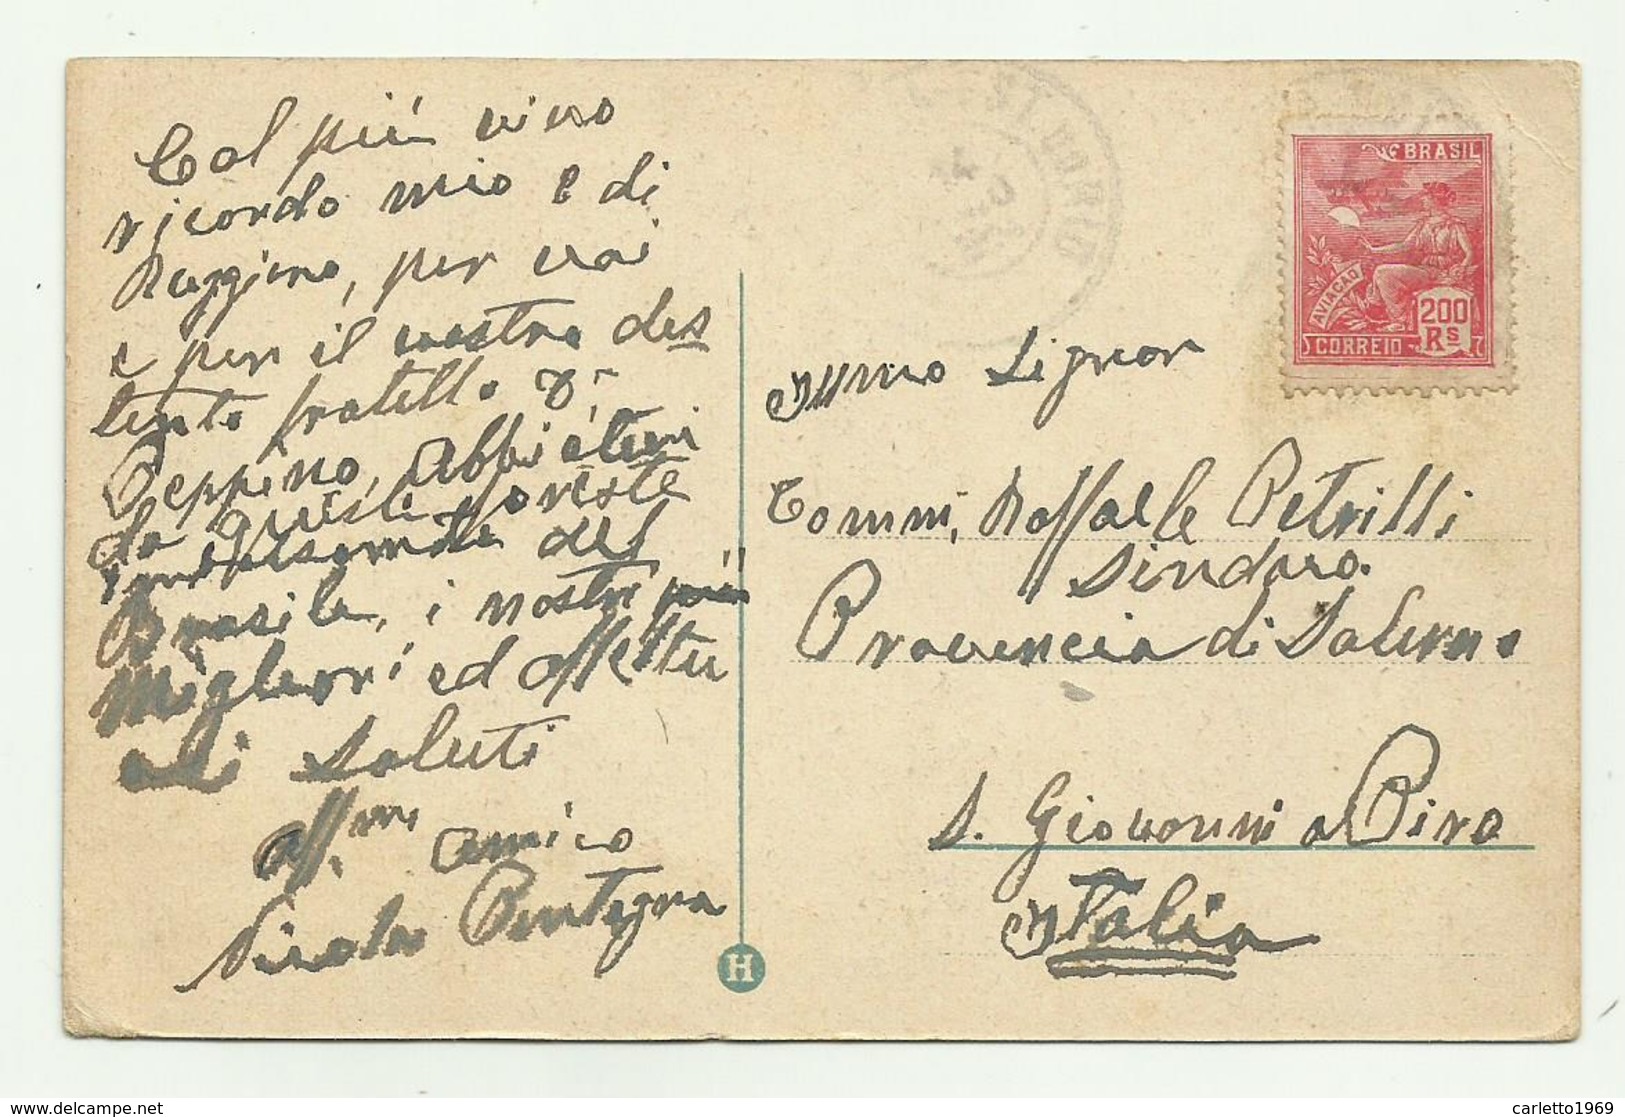 Col più vivo
ricordo mio e di
Ruggiero, per voi
e per il vostro des
tinto fratello Dr
Peppino, abbiatevi
da queste foreste
del
Brasile, i nostri più
migliori ed affettu
osi saluti
aff.mo amico
Nicola Pentagna
BRASIL
AVIAÇÃO
200
Rs
CORREIO
Illmo Signor
Comm, Raffaele Petrilli
Sindaco
Provincia di Salerno
S. Giovanni a Piro
Italia
H
delcampe.net
carletto1969